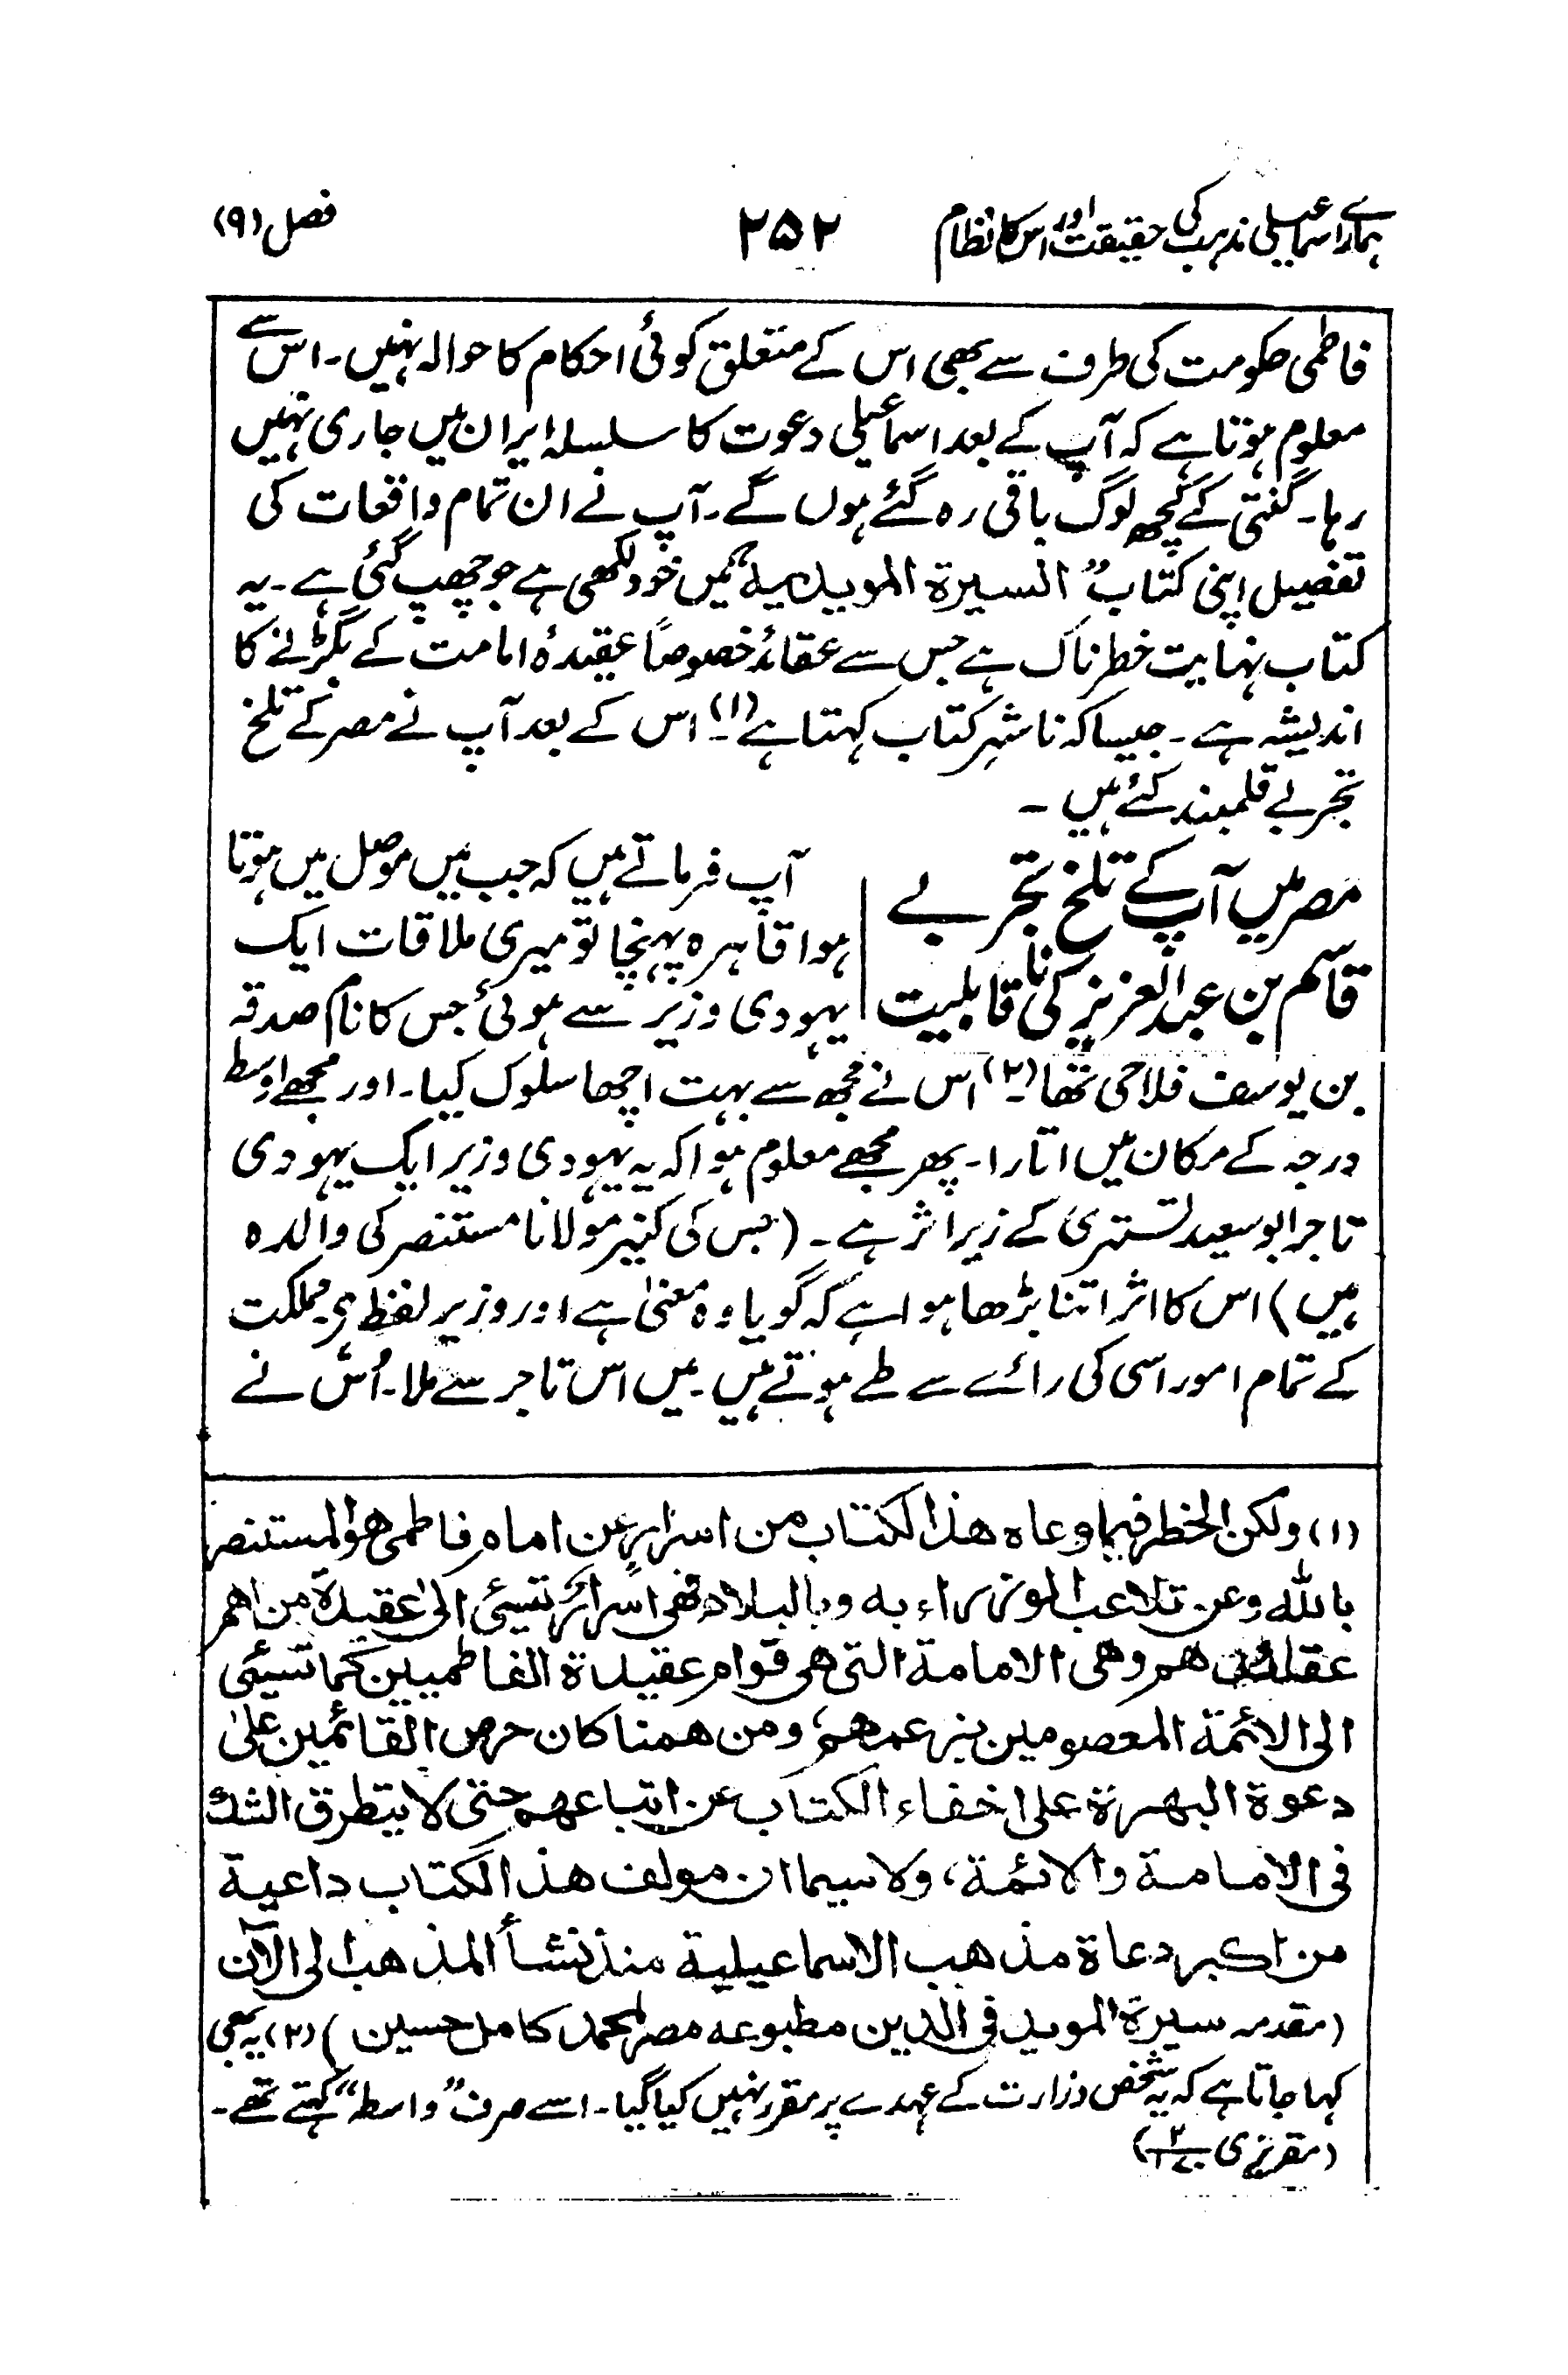 ہمارے اسماعیلی مذہب کی حقیقت اور اس کا نظام ۲۵۲ فصل (۹)
فاطمی حکومت کی طرف سے بھی اس کے متعلق کوئی احکام کا حوالہ نہیں۔ اس سے
معلوم ہوتا ہے کہ آپ کے بعد اسماعیلی دعوت کا سلسلہ ایران میں جاری نہیں
رہا۔ گنتی کے کچھ لوگ باقی رہ گئے ہوں گے۔ آپ نے ان تمام واقعات کی
تفصیل اپنی کتاب "السیرۃ المویدیہ" میں خود لکھی ہے جو چھپ گئی ہے۔ یہ
کتاب نہایت خطرناک ہے جس سے عقائد خصوصاً عقیدۂ امامت کے بگڑنے کا
اندیشہ ہے۔ جیسا کہ ناشرِ کتاب کہتا ہے (۱)۔ اس کے بعد آپ نے مصر کے تلخ
تجربے قلمبند کئے ہیں ۔
مصر میں آپ کے تلخ تجربے
قاسم بن عبد العزیز کی نا قابلیت
آپ فرماتے ہیں کہ جب میں موصل میں ہوتا
ہوا قاہرہ پہنچا تو میری ملاقات ایک
یہودی وزیر سے ہوئی جس کا نام صدقہ
بن یوسف فلاحی تھا (۲)۔ اس نے مجھ سے بہت اچھا سلوک کیا۔ اور مجھے اوسط
درجہ کے مکان میں اتارا۔ پھر مجھے معلوم ہوا کہ یہ یہودی وزیر ایک یہودی
تاجر ابو سعید تستری کے زیر اثر ہے۔ (جس کی کنیز مولانا مستنصر کی والدہ
ہیں) اس کا اثر اتنا بڑھا ہوا ہے کہ گویا وہ معنیٰ ہے اور وزیر لفظ ہے۔ مملکت
کے تمام امور اسی کی رائے سے طے ہوتے ہیں۔ میں اس تاجر سے ملا۔ اُس نے
(۱) ولکن الخطر فیما وعاہ ھذا الکتاب من اسرار عن امام فاطمی ھو المستنصر
باللہ وعن تلاعب الوزراء بہ وبالبلاد فھی اسرار تسیئ الیٰ عقیدۃ من اھم
عقائد ھم وھی الامامۃ التی ھی قوام عقیدۃ الفاطمیین کما تسیئی
الی الائمۃ المعصومین بزعمھم، ومن ھمنا کان حرص القائمین علیٰ
دعوۃ البھرۃ علی اخفاء الکتاب عن اتباعھم حتی لا یتطرق الشک
فی الامامۃ والائمۃ، ولا سیما ان مولف ھذا الکتاب داعیۃ
من اکبر دعاۃ مذھب الاسماعیلیۃ منذ نشأ المذھب الی الآن
(مقدمہ سیرۃ الموید فی الدین مطبوعہ مصر لمحمد کامل حسین) (۲) یہ بھی
کہا جاتا ہے کہ یہ شخص وزارت کے عہدے پر مقرر نہیں کیا گیا۔ اسے صرف "واسطہ" کہتے تھے۔
(مقریزی